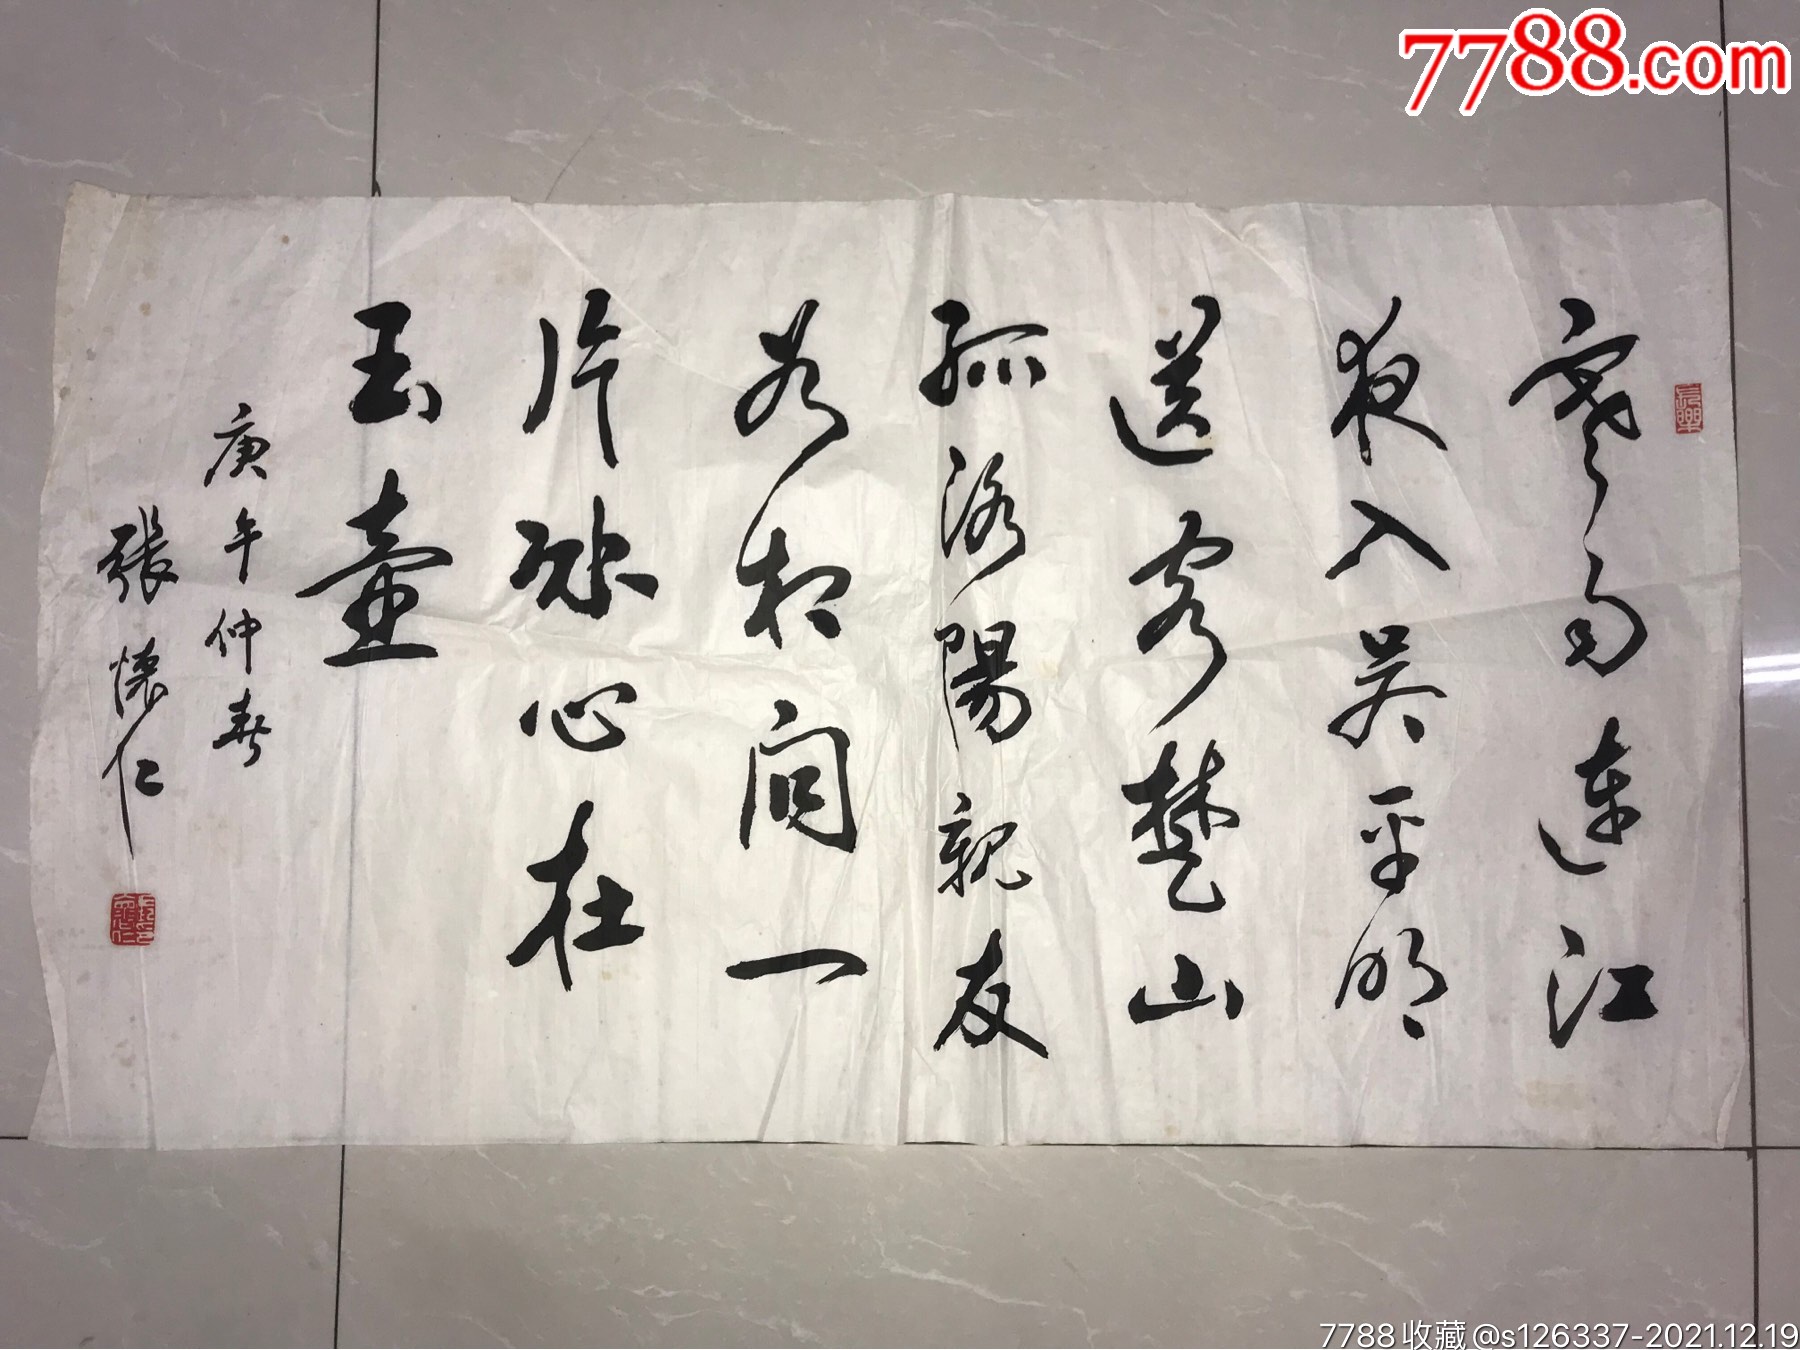 寒雨連江
夜入吴平明
送客楚山
孤洛陽親友
如相问一
片冰心在
玉壶
庚午仲春
張懷仁
7788.com
7788收藏@s126337-2021.12.19